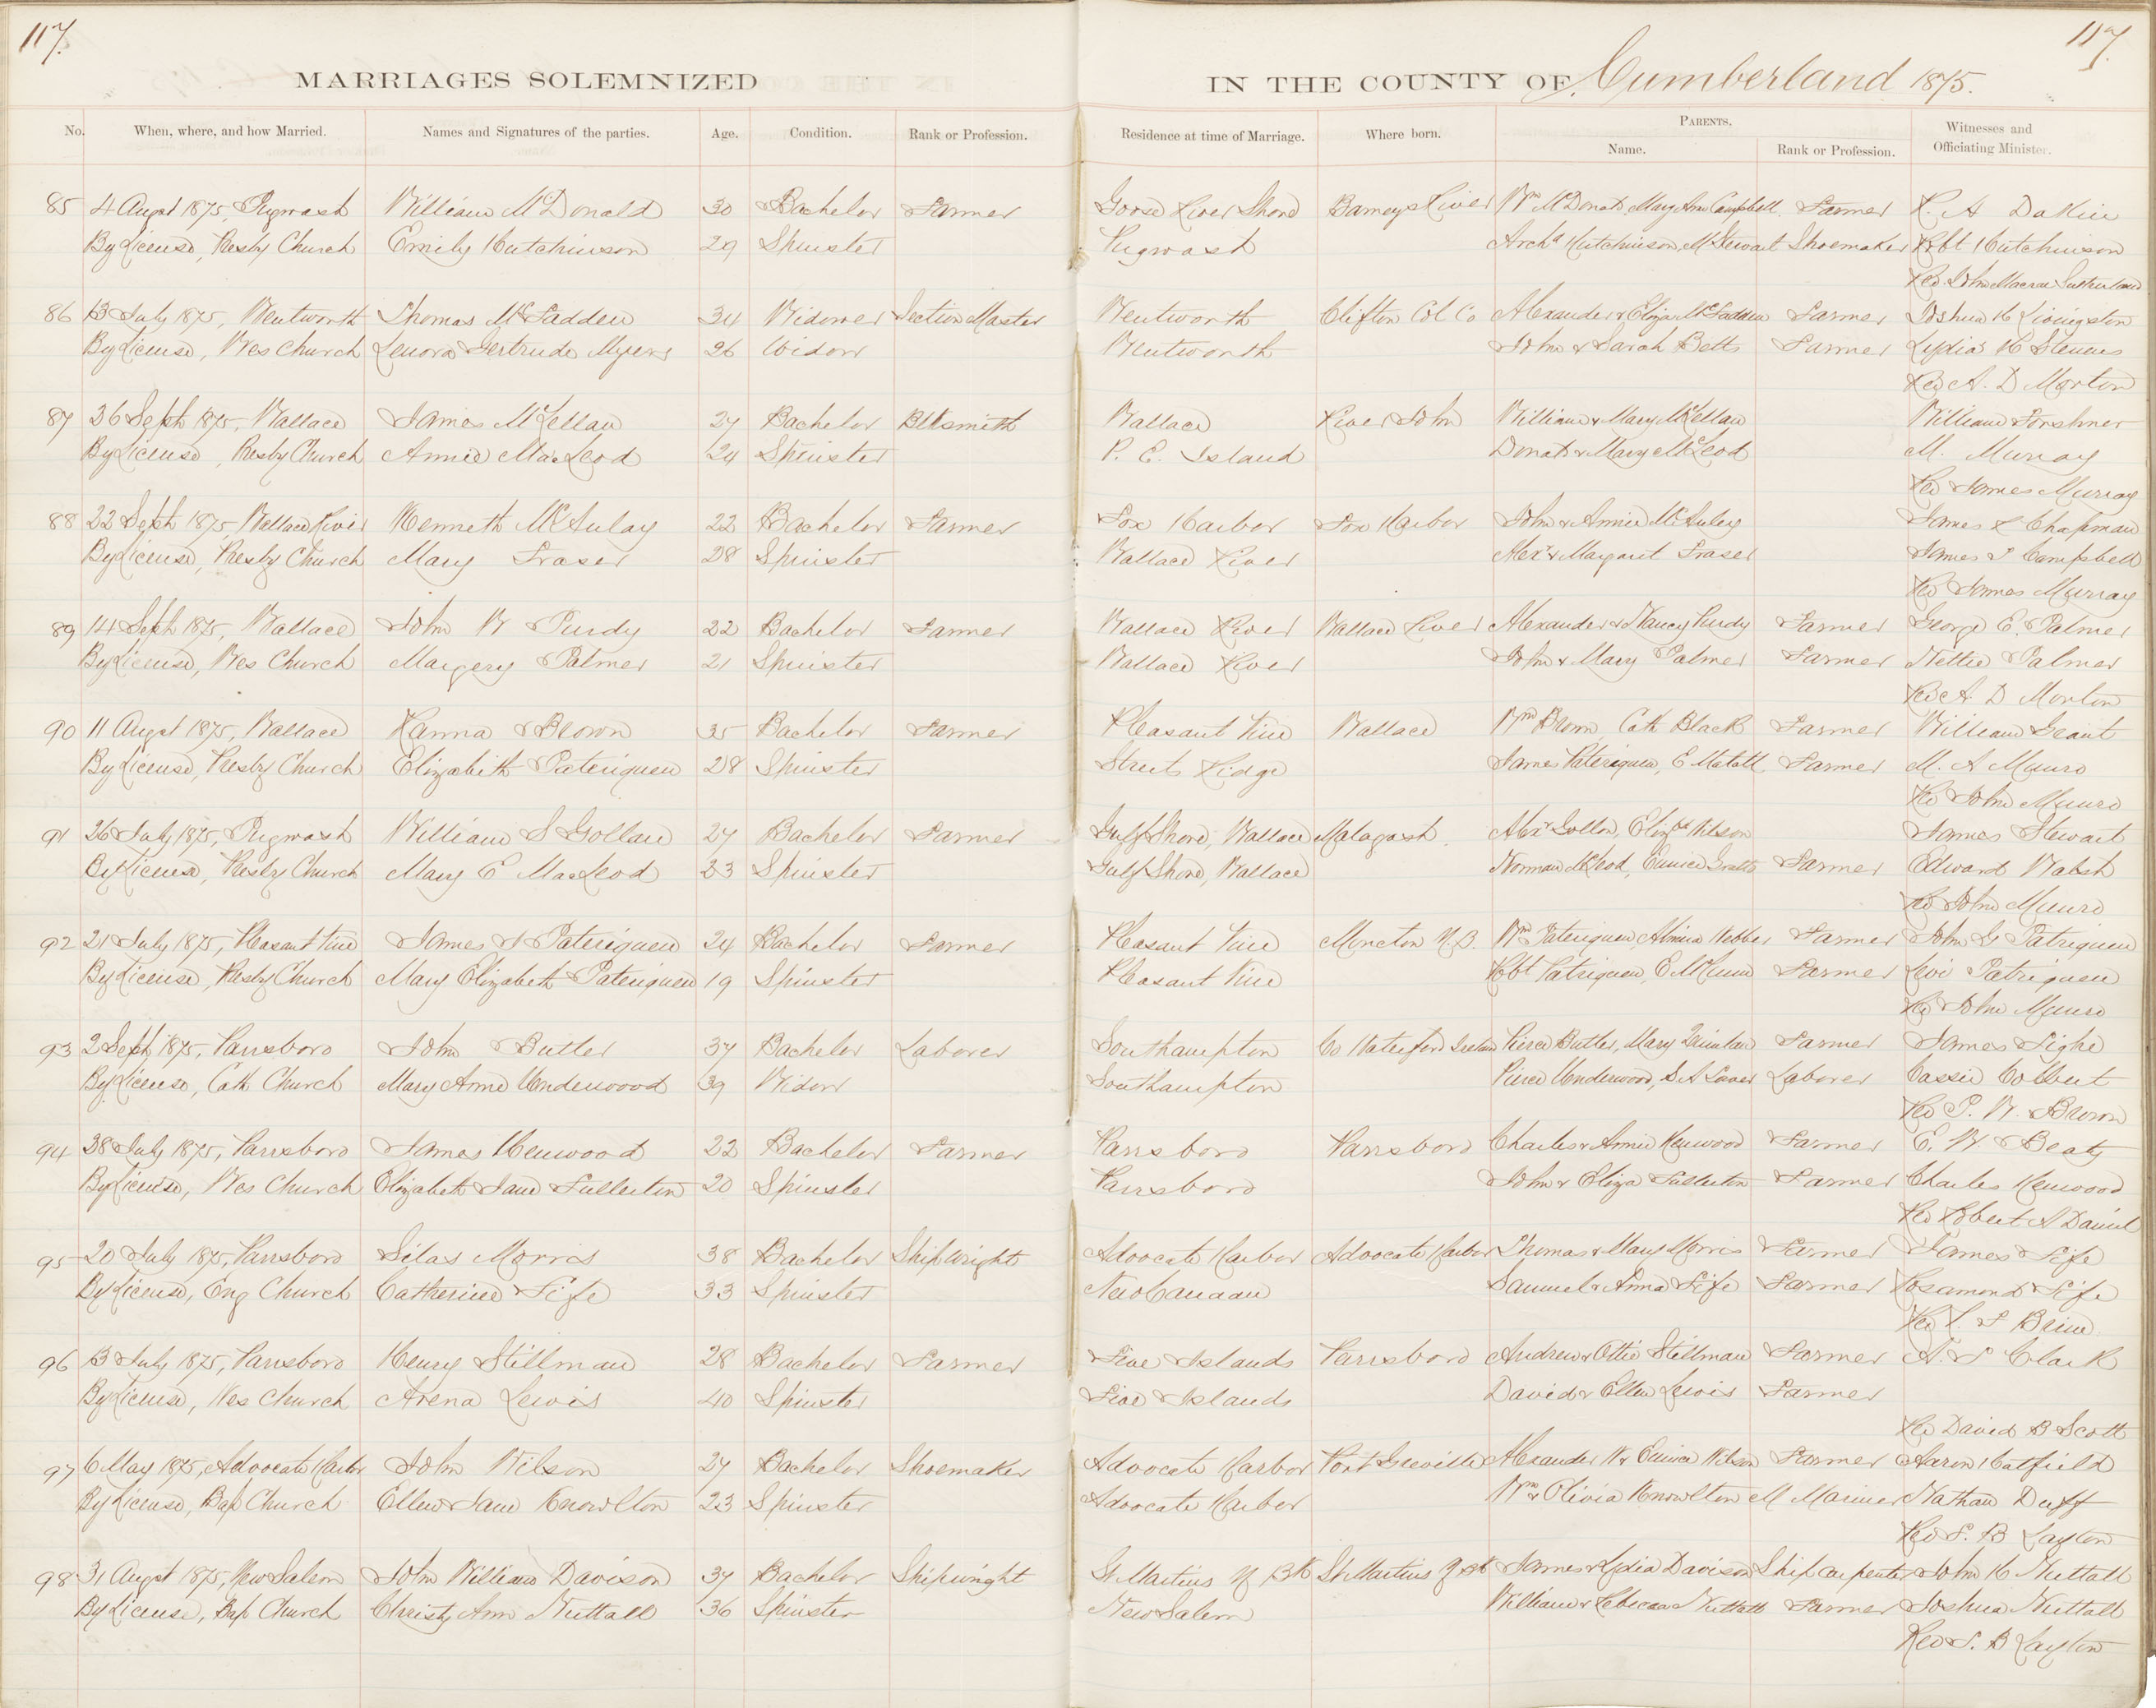 117.
117.
MARRIAGES SOLEMNIZED IN THE COUNTY OF Cumberland 1875.
No. When, where, and how Married. Names and Signatures of the parties. Age. Condition. Rank or Profession. Residence at time of Marriage. Where born. PARENTS. Witnesses and
Name. Rank or Profession. Officiating Minister.
85 4 Augst 1875, Pugwash William McDonald 30 Bachelor Farmer Goose River Shore Barneys River Wm McDonald, Mary Ann Campbell Farmer R. A Dakin
By License, Presby Church Emily Hutchinson 29 Spinster Pugwash Archd Hutchinson, M Stewart Shoemaker Robt Hutchinson
Rev. John Macrae Sutherland
86 13 July 1875, Wentworth Thomas McFadden 34 Widower Section Master Wentworth Clifton Col Co Alexander & Eliza McFadden Farmer Joshua H Livingston
By License, Wes Church Lenora Gertrude Myers 26 Widow Wentworth John & Sarah Betts Farmer Lydia H Stevens
Rev A. D Morton
87 26 Sept 1875, Wallace James McLellan 27 Bachelor Blksmith Wallace River John William & Mary McLellan William Forshner
By License, Presby Church Annie MacLeod 24 Spinster P. E. Island Donald & Mary McLeod M. Murray
Rev James Murray
88 22 Sept 1875, Wallace River Kenneth McAulay 22 Bachelor Farmer Fox Harbor Fox Harbor John & Annie McAuley James Chapman
By License, Presby Church Mary Fraser 28 Spinster Wallace River Alexr & Margaret Fraser James Campbell
Rev James Murray
89 14 Sept 1875, Wallace John W Purdy 22 Bachelor Farmer Wallace River Wallace River Alexander & Nancy Purdy Farmer George E. Palmer
By License, Wes Church Margery Palmer 21 Spinster Wallace River John & Mary Palmer Farmer Nettie Palmer
Rev A D Morton
90 11 Augst 1875, Wallace Hanna Brown 35 Bachelor Farmer Pleasant Vine Wallace Wm Brown, Cath Black Farmer William Grant
By License, Presby Church Elizabeth Pateriquen 28 Spinster Streets Ridge James Pateriquen, E Farmer M. A Munro
Rev John Munro
91 26 July 1875, Pugwash William S Gollan 27 Bachelor Farmer Gulf Shore, Wallace Malagash. Alexr Gollan, Elizbth Wilson James Stewart
By License, Presby Church Mary E MacLeod 23 Spinster Gulf Shore, Wallace Norman McLeod, Eunice Farmer Edward Walsh
Rev John Munro
92 21 July 1875, Pleasant Vine James Pateriquen 24 Bachelor Farmer Pleasant Vine Moncton N.B. Wm Pateriquen Almira Webber Farmer John G Patriquen
By License, Presby Church Mary Elizabeth Pateriquen 19 Spinster Pleasant Vine Robt Patriquen, E Farmer Levi Patriquen
Rev John Munro
93 2 Sept 1875, Parrsboro John Butler 37 Bachelor Laborer Southampton Co Waterford Ireland Pierce Butler, Mary Quinlan Farmer James Tighe
By License, Cath Church Mary Anne Underwood 39 Widow Southampton Pierce Underwood, S A Laborer Cassie Colbert
Rev P. W. Brown
94 28 July 1875, Parrsboro James Henwood 22 Bachelor Farmer Parrsboro Parrsboro Charles & Annie Henwood Farmer E. W. Beaty
By License, Wes Church Elizabeth Jane Fullerton 20 Spinster Parrsboro John & Eliza Fullerton Farmer Charles Henwood
Rev Robert A Daniel
95 20 July 1875, Parrsboro Silas Morris 38 Bachelor Ship Wright Advocate Harbor Advocate Harbor Thomas & Mary Morris Farmer James Fife
By License, Eng Church Catherine Fife 33 Spinster New Canaan Samuel & Anna Fife Farmer Rosamond Fife
Rev Brine
96 13 July 1875, Parrsboro Henry Stillman 28 Bachelor Farmer Five Islands Parrsboro Andrew & Ottie Stillman Farmer A. S Clark
By License, Wes Church Arena Lewis 40 Spinster Five Islands David & Ellen Lewis Farmer
Rev David B Scott
97 6 May 1875, Advocate Harbor John Wilson 27 Bachelor Shoemaker Advocate Harbor Port Greville Alexander W & Eunice Wilson Farmer Aaron Hatfield
By License, Bap Church Ellen Jane Knowlton 23 Spinster Advocate Harbor Wm & Olivia Knowlton M Mariner Nathan Duff
Rev S. B Layton
98 31 Augst 1875, New Salem John William Davison 37 Bachelor Shipwright St Martins N Bk St Martins N Bk James & Lydia Davison Ship Carpenter John H Nuttall
By License, Bap Church Christy Ann Nuttall 36 Spinster New Salem William & Rebecca Nuttall Farmer Joshua Nuttall
Rev S. B Layton